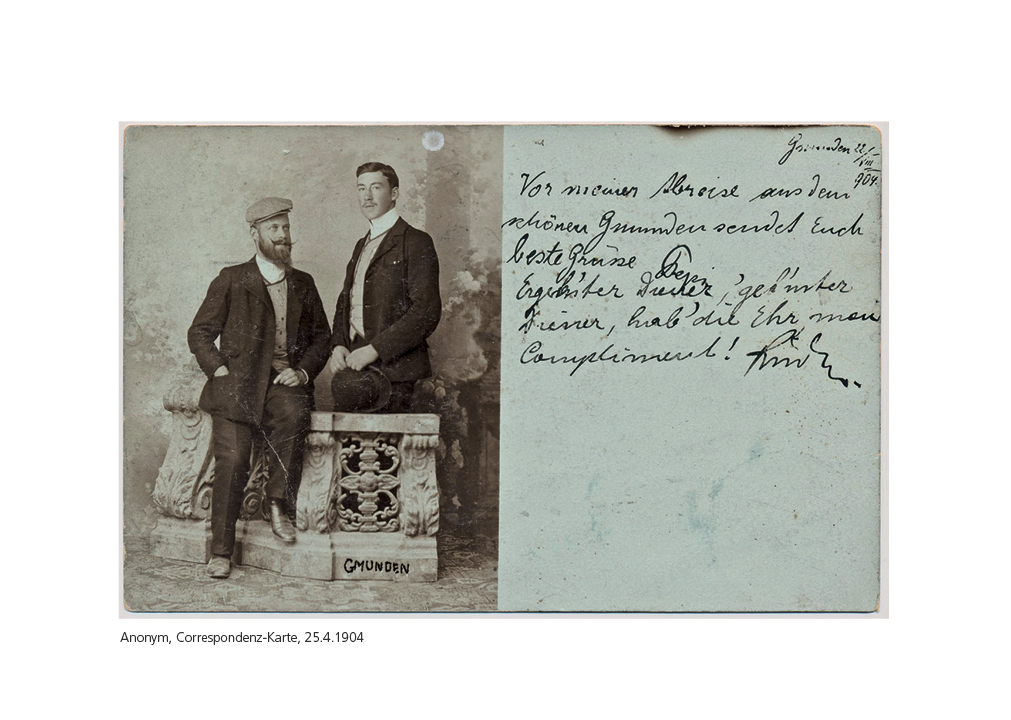 Gmunden 22/VIII 904.
Vor meiner Abreise aus dem
schönen Gmunden sendet Euch
beste Grüsse Pepi
Ergebn'ster Diener, 'gehn'ster
Diener, hab' die Ehr mein
Compliment!
GMUNDEN
Anonym, Correspondenz-Karte, 25.4.1904